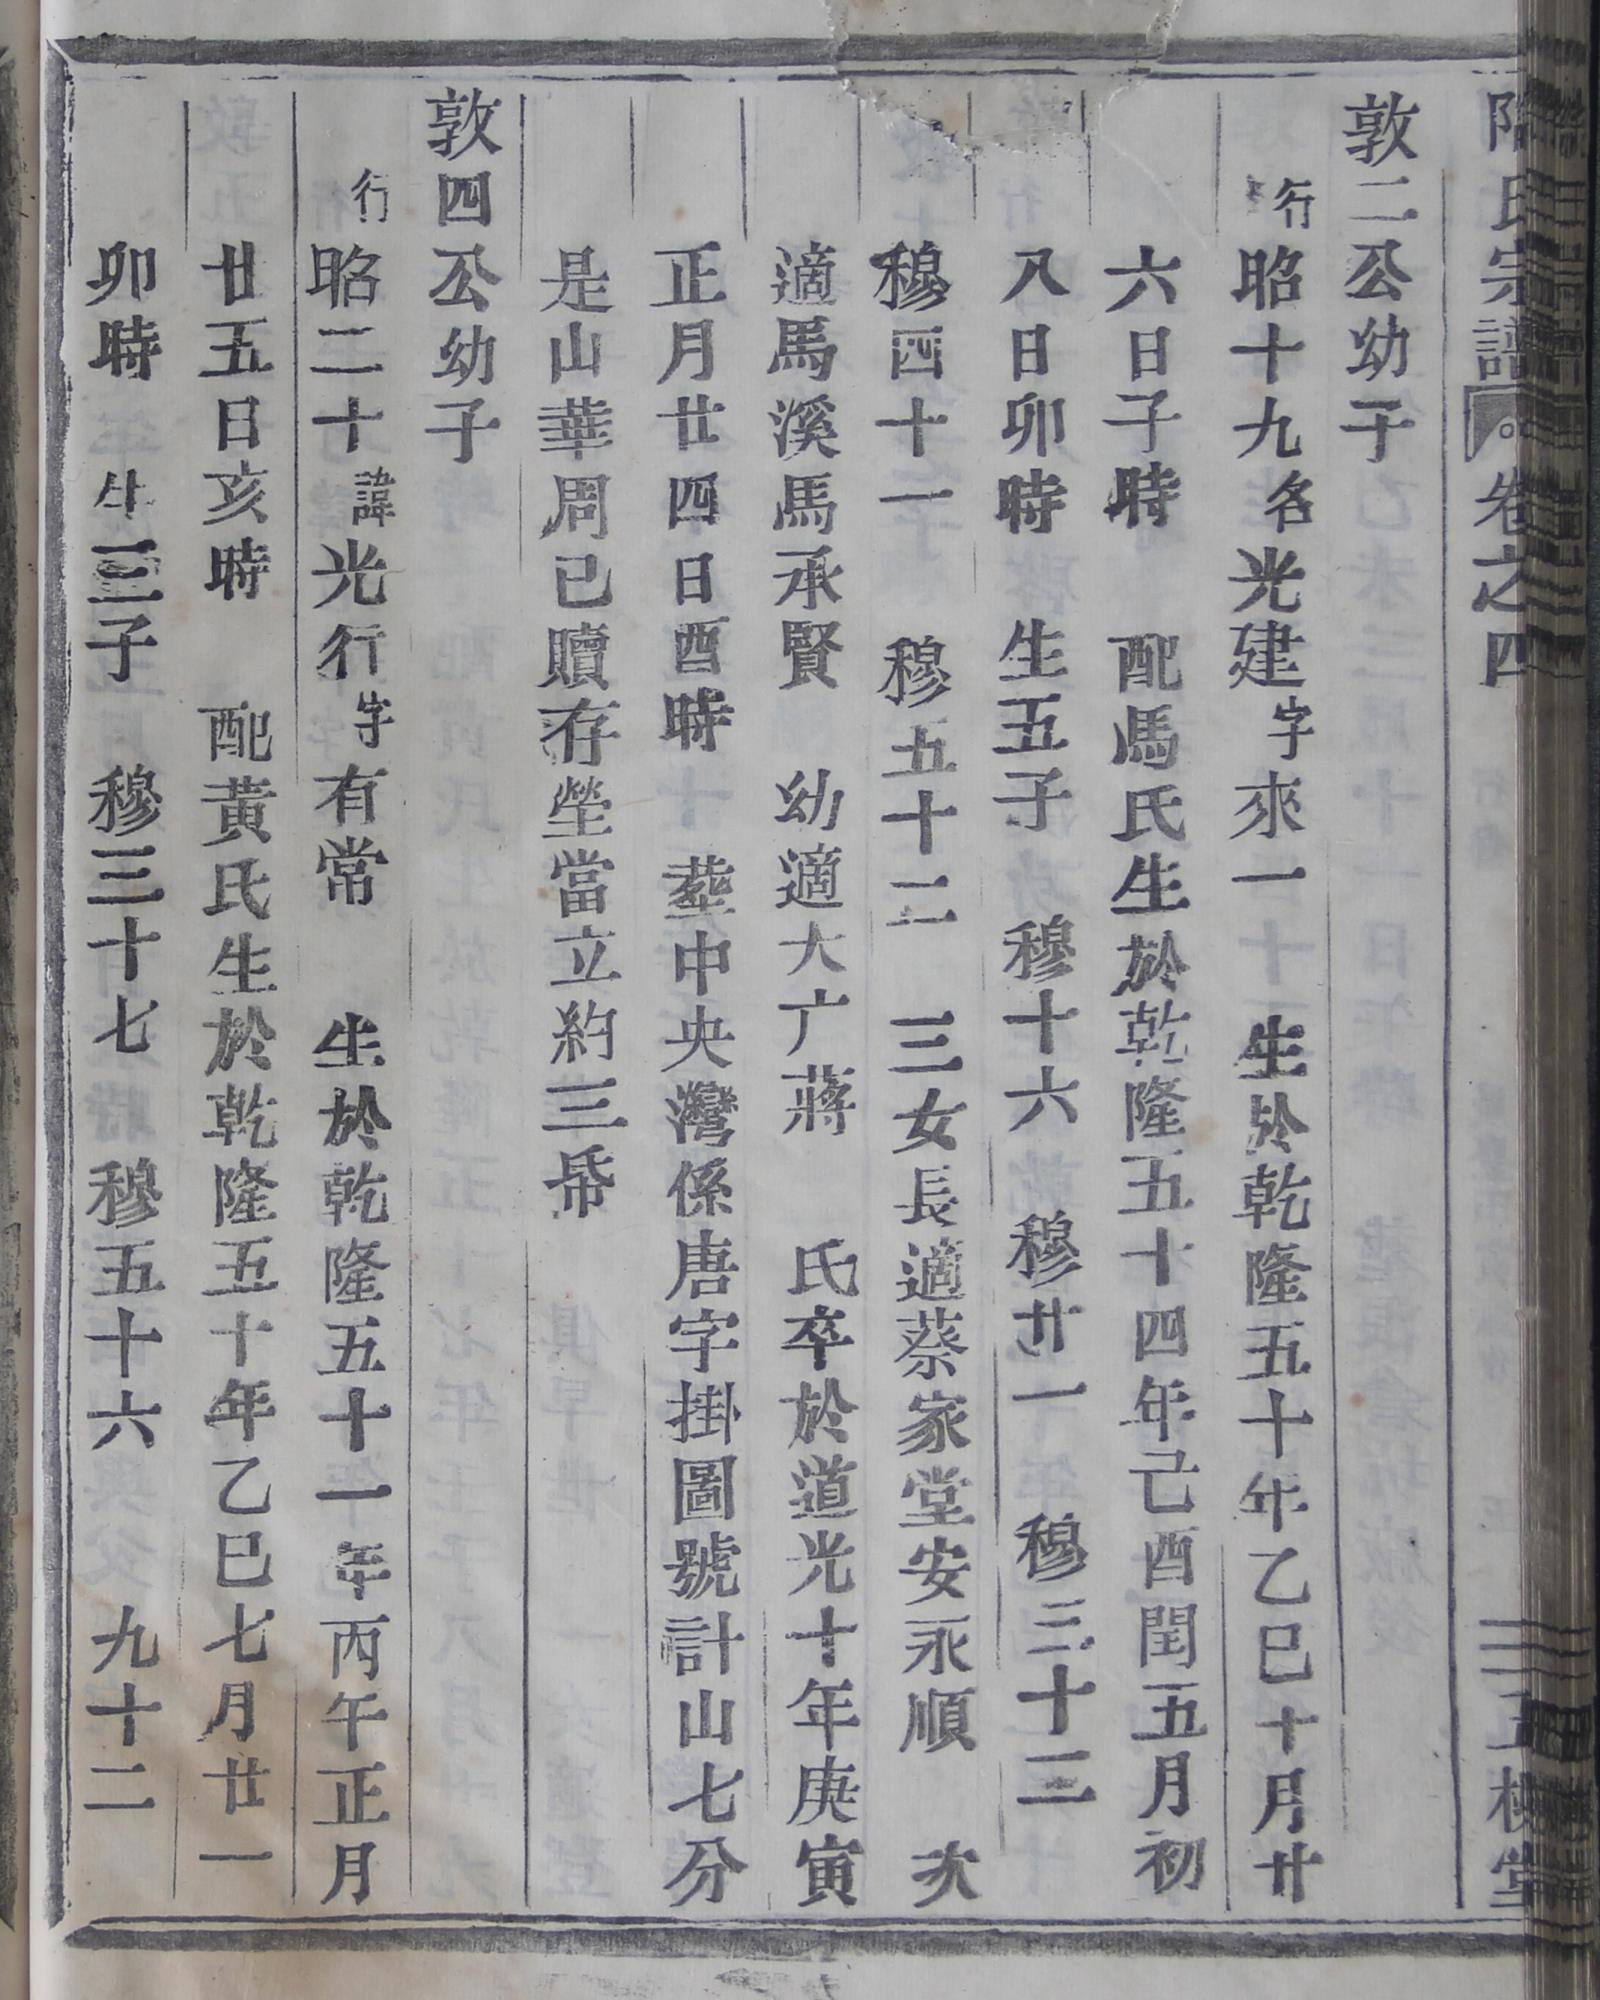 氏宗譜 卷之四 三槐堂
敦二公幼子
行昭十九名光建字來一 生於乾隆五十年乙巳十月廿
六日子時 配馬氏生於乾隆五十四年己酉閏五月初
八日卯時 生五子 穆十六 穆廿一 穆三十三
穆四十一 穆五十二 三女長適蔡家堂安永順 次
適馬溪馬承賢 幼適大广蔣 氏卒於道光十年庚寅
正月廿四日酉時 塟中央灣係唐字掛圖號計山七分
是山華周已贖存塋當立約三帋
敦四公幼子
行昭二十諱光行字有常 生於乾隆五十一年丙午正月
廿五日亥時 配黃氏生於乾隆五十年乙巳七月廿一
卯時 生三子 穆三十七 穆五十六 九十二